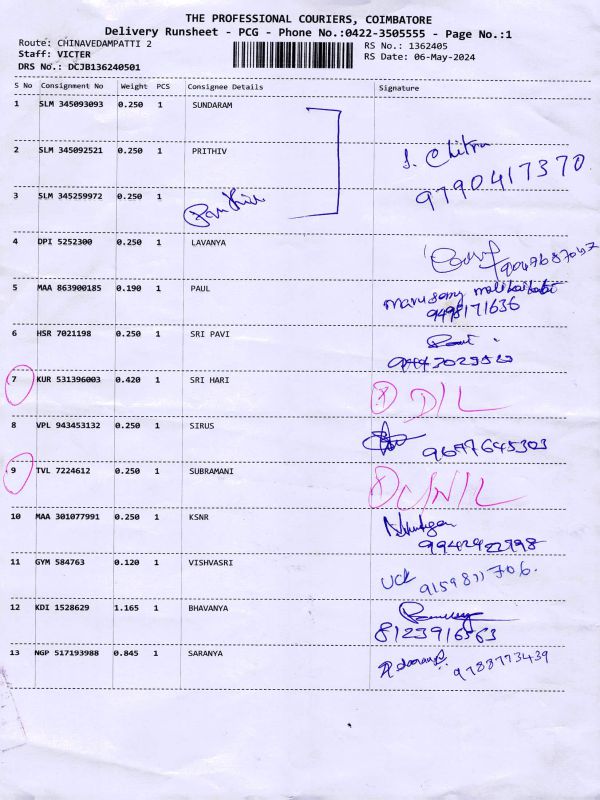 THE PROFESSIONAL COURIERS, COIMBATORE
Delivery Runsheet - PCG - Phone No.:0422-3505555 - Page No.:1
Route: CHINAVEDAMPATTI 2
RS No.: 1362405
Staff: VICTER
RS Date: 06-May-2024
DRS No.: DCJB136240501
S No Consignment No Weight PCS Consignee Details Signature
1 SLM 345093093 0.250 1 SUNDARAM
2 SLM 345092521 0.250 1 PRITHIV S. Chitra
9790417370
3 SLM 345259972 0.250 1
4 DPI 5252300 0.250 1 LAVANYA
5 MAA 863900185 0.190 1 PAUL
9498171636
6 HSR 7021198 0.250 1 SRI PAVI
7 KUR 531396003 0.420 1 SRI HARI D/L
8 VPL 943453132 0.250 1 SIRUS
9677645303
9 TVL 7224612 0.250 1 SUBRAMANI
10 MAA 301077991 0.250 1 KSNR
11 GYM 584763 0.120 1 VISHVASRI
12 KDI 1528629 1.165 1 BHAVANYA
8123916563
13 NGP 517193988 0.845 1 SARANYA 9788773439